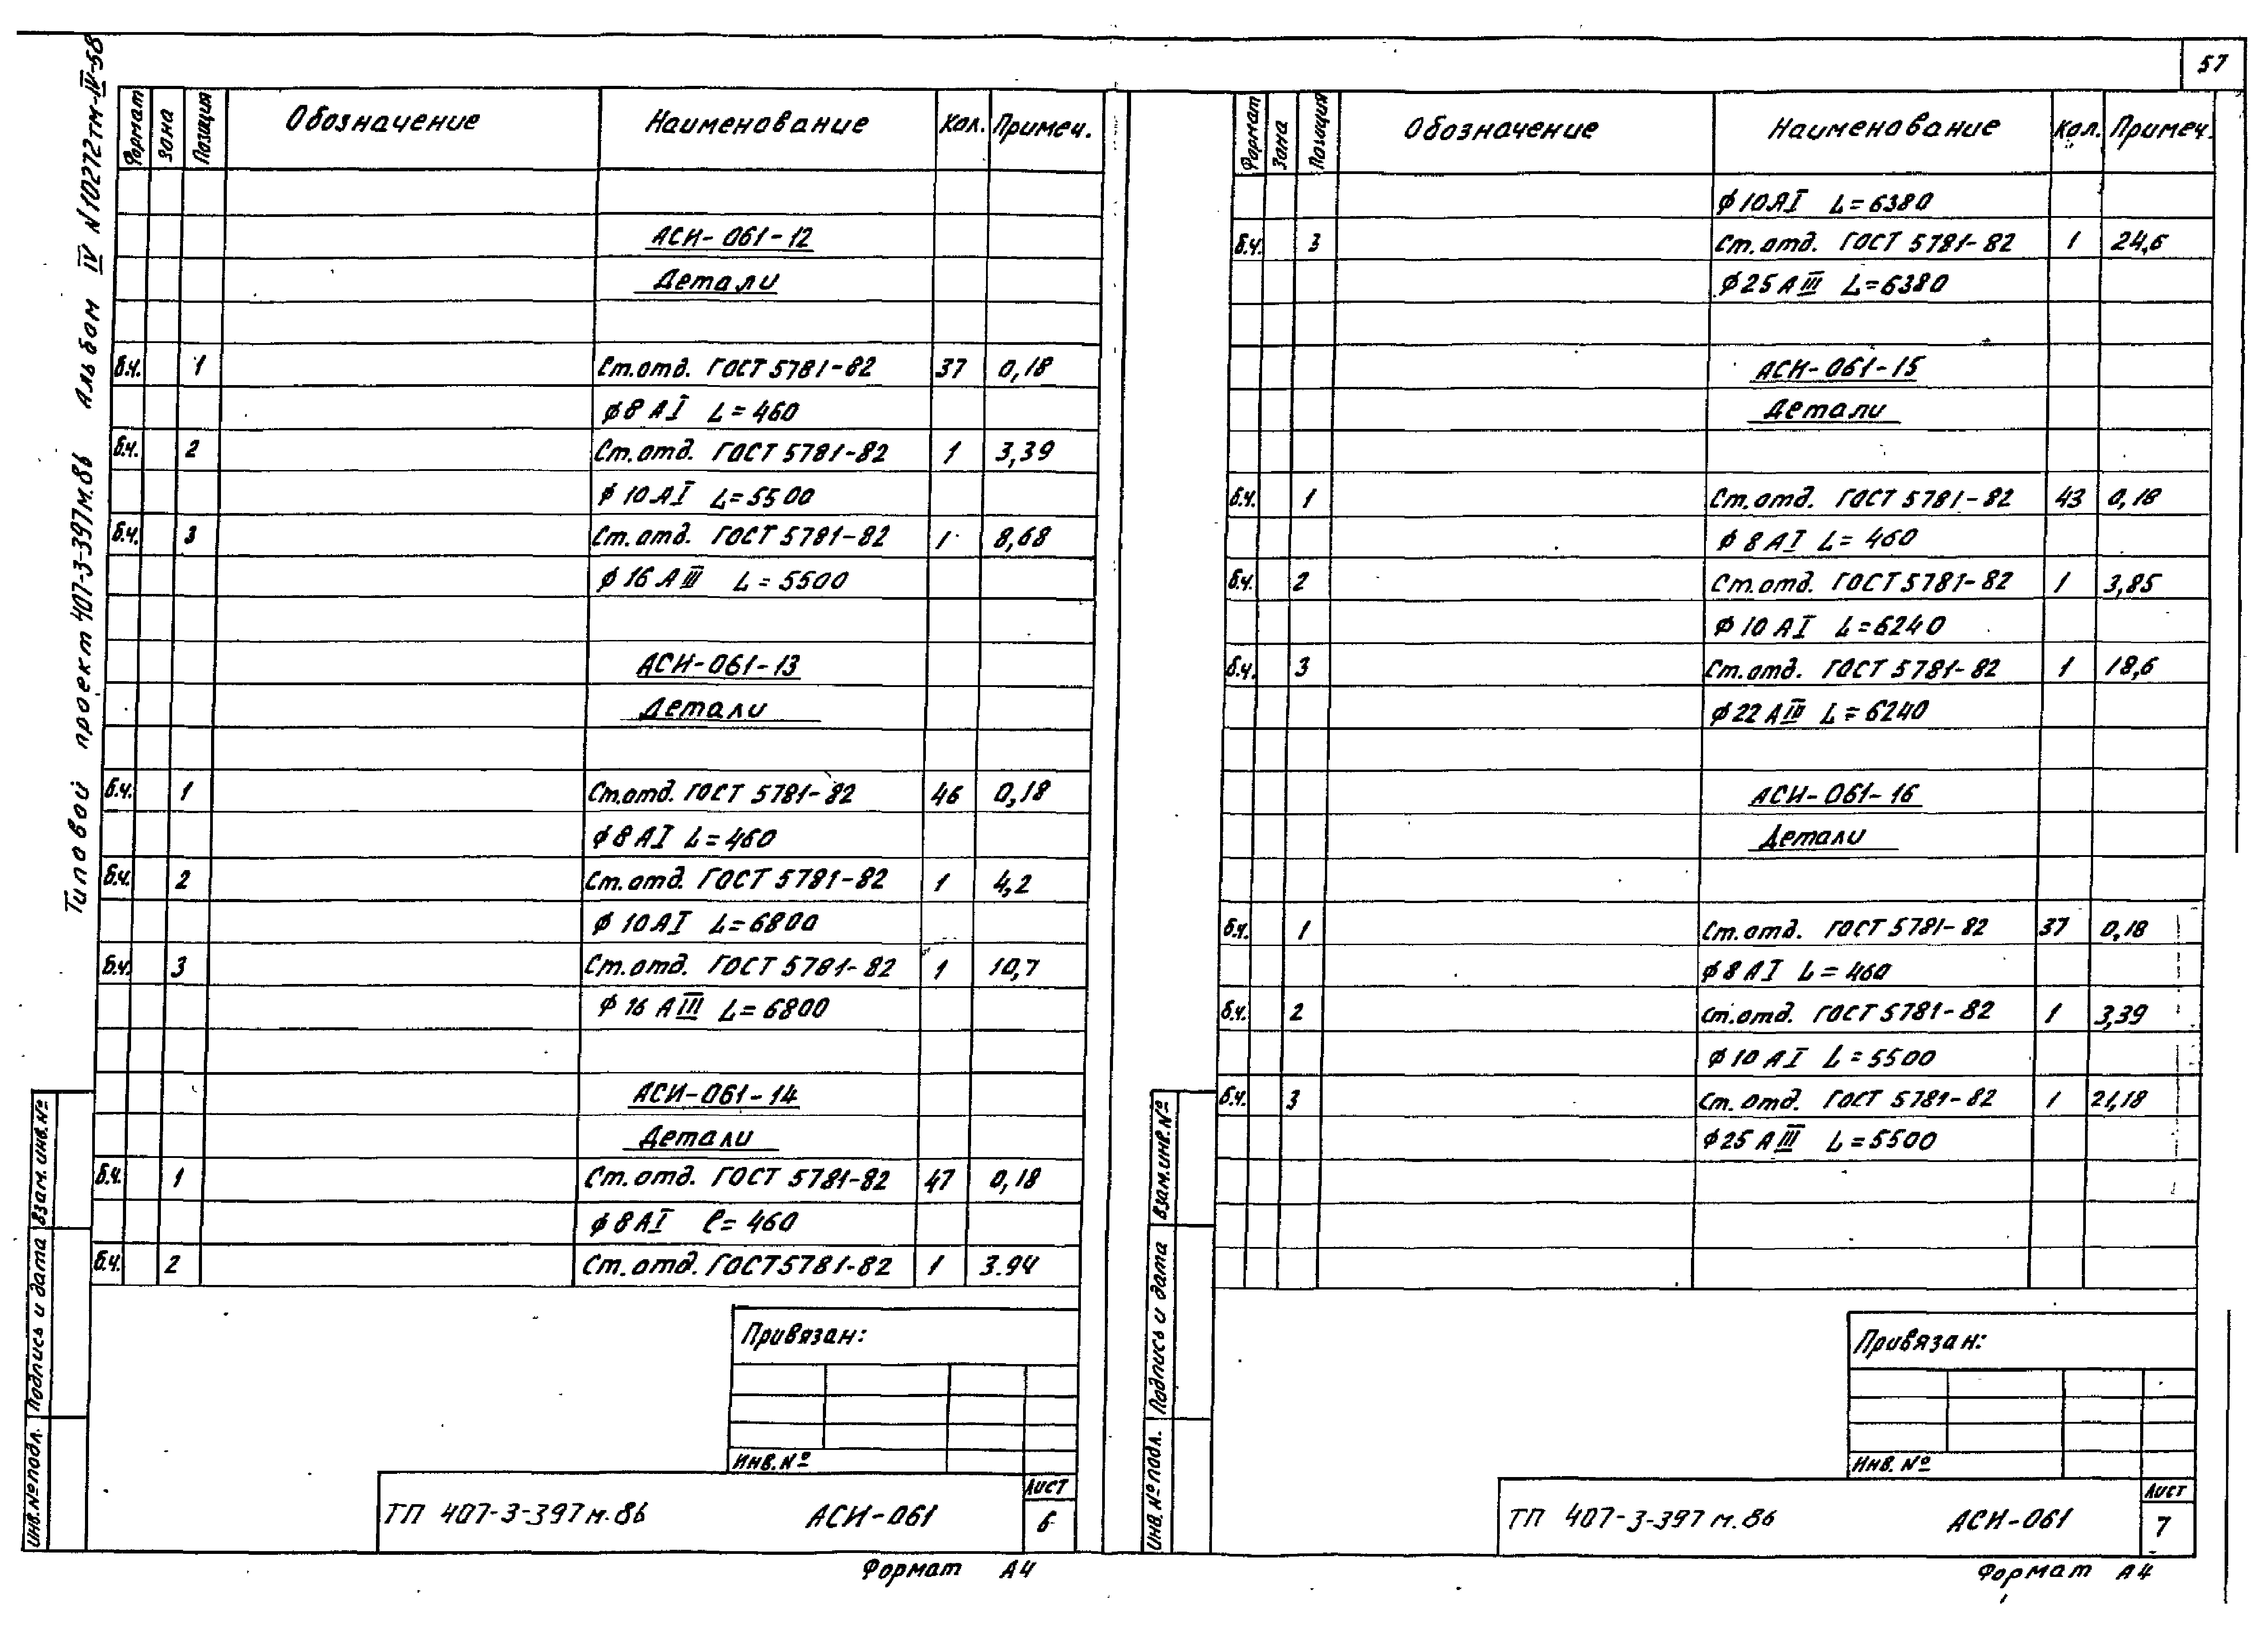 57
Типовой проект 407-3-397м.86 Альбом IV N10272тм-IV-58
Формат Зона Позиция Обозначение Наименование Кол. Примеч.
АСИ-061-12
Детали
б.ч. 1 Ст.отд. ГОСТ 5781-82 37 0,18
ϕ8 АI L=460
б.ч. 2 Ст.отд. ГОСТ 5781-82 1 3,39
ϕ10 АI L=5500
б.ч. 3 Ст.отд. ГОСТ 5781-82 1 8,68
ϕ16 АIII L=5500
АСИ-061-13
Детали
б.ч. 1 Ст.отд. ГОСТ 5781-82 46 0,18
ϕ8 АI L=460
б.ч. 2 Ст.отд. ГОСТ 5781-82 1 4,2
ϕ10 АI L=6800
б.ч. 3 Ст.отд. ГОСТ 5781-82 1 10,7
ϕ16 АIII L=6800
АСИ-061-14
Детали
б.ч. 1 Ст.отд. ГОСТ 5781-82 47 0,18
ϕ8 АI ℓ=460
б.ч. 2 Ст.отд. ГОСТ 5781-82 1 3.94
Привязан:
Инв.№
ТП 407-3-397м.86 АСИ-061 Лист 6
Инв.№подл. Подпись и дата Взам.инв.№
Формат А4
Формат Зона Позиция Обозначение Наименование Кол. Примеч.
ϕ10 АI L=6380
б.ч. 3 Ст.отд. ГОСТ 5781-82 1 24,6
ϕ25 АIII L=6380
АСИ-061-15
Детали
б.ч. 1 Ст.отд. ГОСТ 5781-82 43 0,18
ϕ8 АI L=460
б.ч. 2 Ст.отд. ГОСТ 5781-82 1 3,85
ϕ10 АI L=6240
б.ч. 3 Ст.отд. ГОСТ 5781-82 1 18,6
ϕ22 АIII L=6240
АСИ-061-16
Детали
б.ч. 1 Ст.отд. ГОСТ 5781-82 37 0,18
ϕ8 АI L=460
б.ч. 2 Ст.отд. ГОСТ 5781-82 1 3,39
ϕ10 АI L=5500
б.ч. 3 Ст.отд. ГОСТ 5781-82 1 21,18
ϕ25 АIII L=5500
Привязан:
Инв.№
ТП 407-3-397м.86 АСИ-061 Лист 7
Инв.№подл. Подпись и дата Взам.инв.№
Формат А4